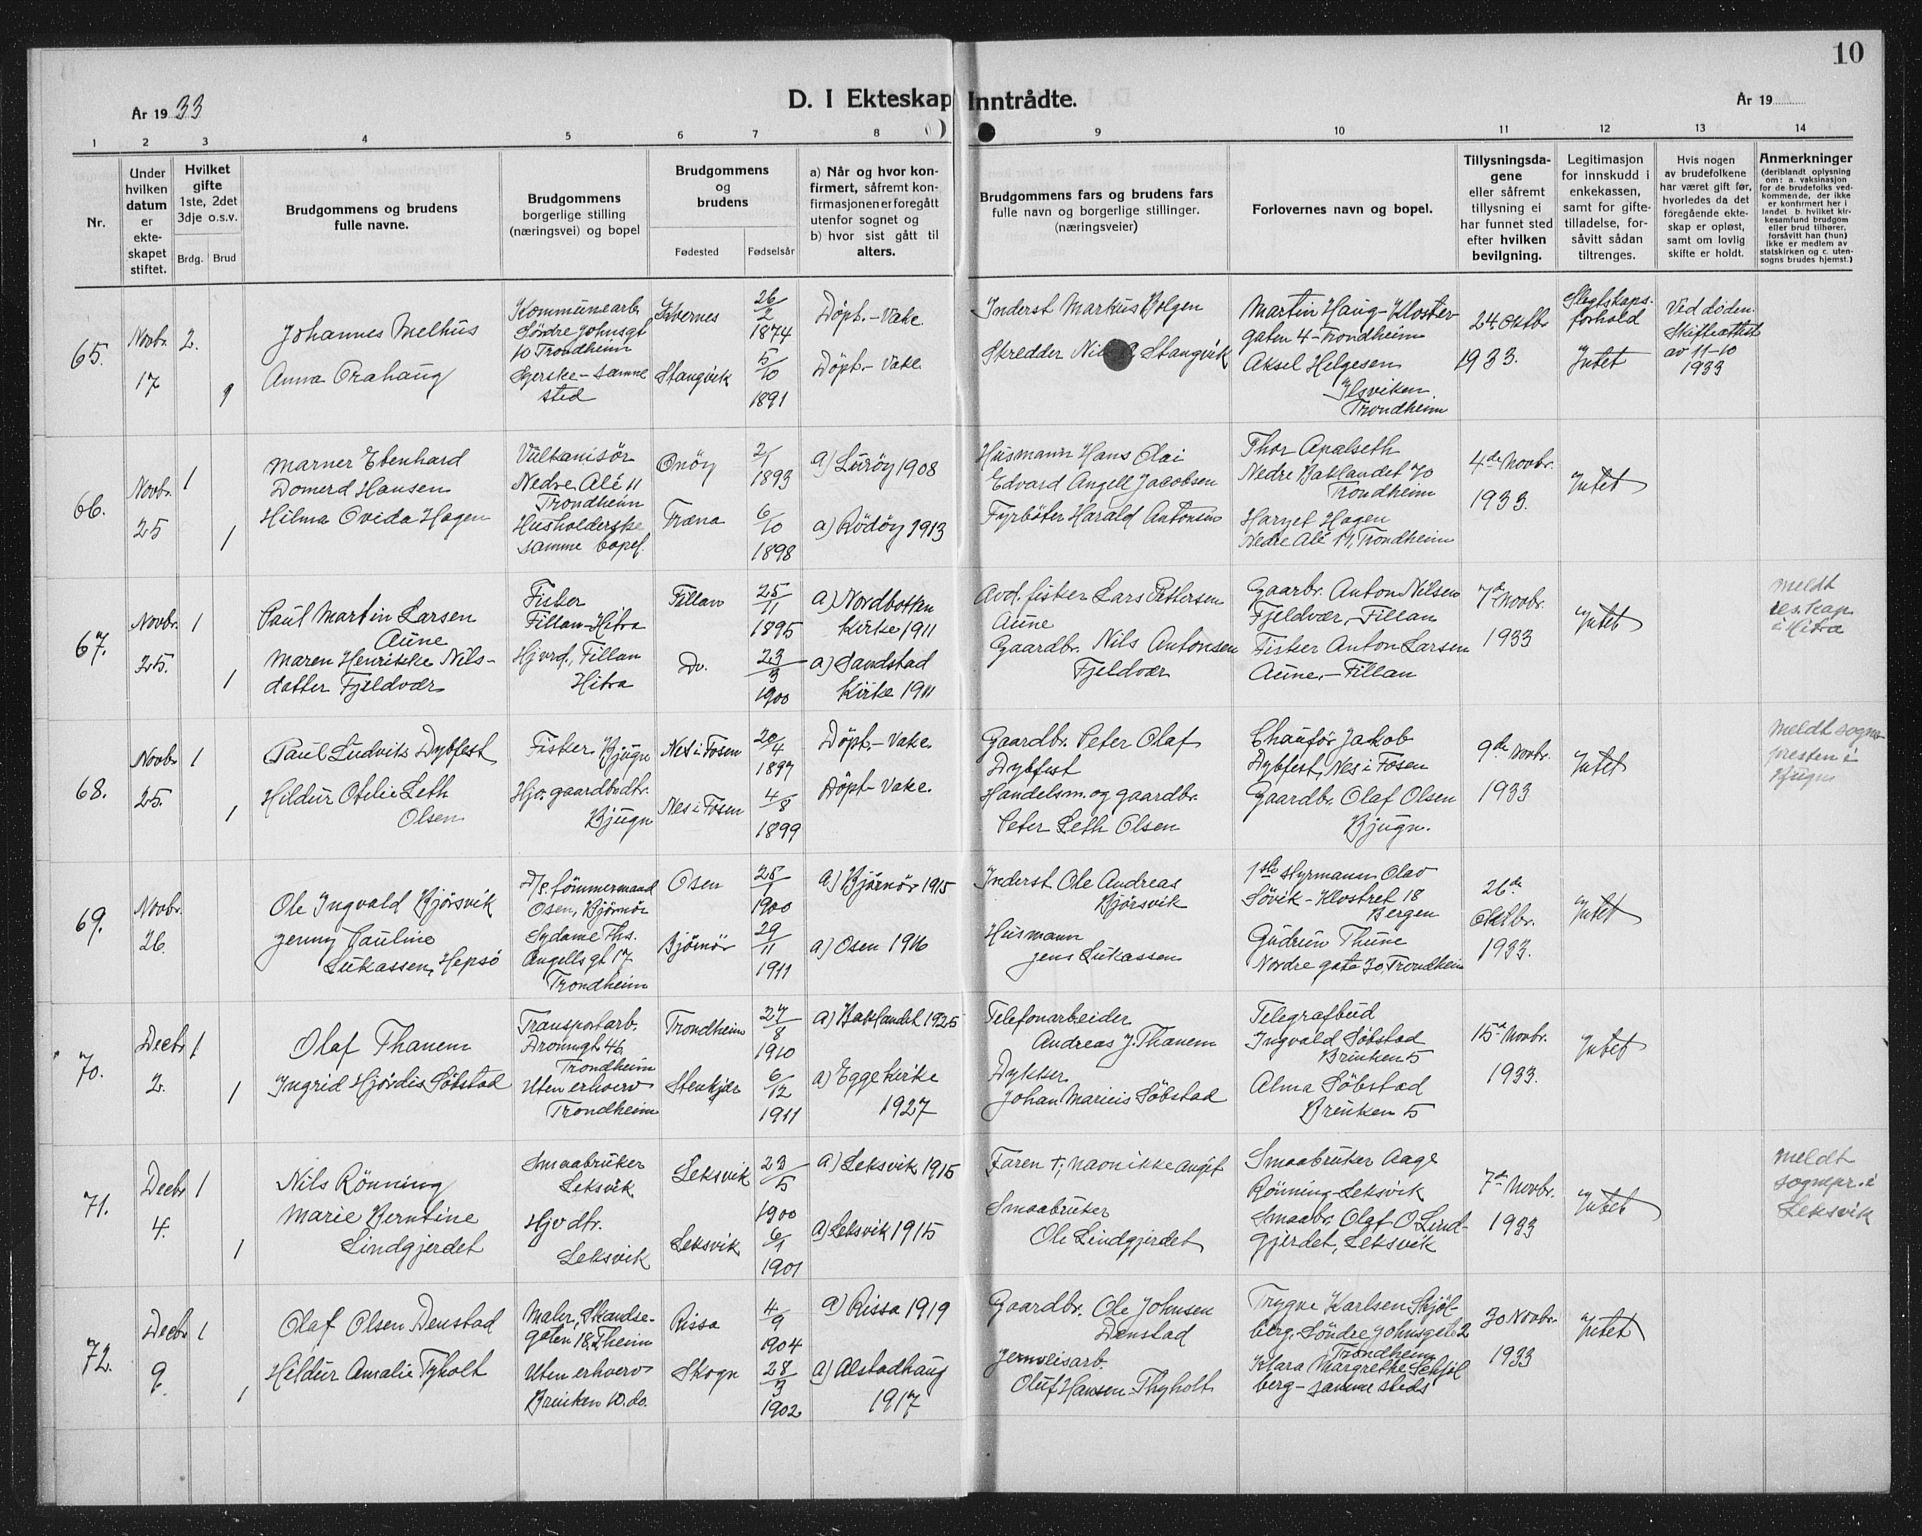 10
D. I Ekteskap Inntrådte.
År 1933
År 19
1 2 3 4 5 6 7 8 9 10 11 12 13 14
Nr.
Under hvilken datum er ekteskapet stiftet.
Hvilket gifte 1ste, 2det 3dje o.s.v.
Brdg. Brud
Brudgommens og brudens fulle navne.
Brudgommens borgerlige stilling (næringsvei) og bopel
Brudgommens og brudens
Fødested Fødselsår
a) Når og hvor konfirmert, såfremt konfirmasjonen er foregått utenfor sognet og b) hvor sist gått til alters.
Brudgommens fars og brudens fars fulle navn og borgerlige stillinger. (næringsveier)
Forlovernes navn og bopel.
Tillysningsdagene eller såfremt tillysning ei har funnet sted efter hvilken bevilgning.
Legitimasjon for innskudd i enkekassen, samt for giftetilladelse, forsåvitt sådan tiltrenges.
Hvis nogen av brudefolkene har været gift før, hvorledes da det föregående ekteskap er opløst, samt om lovlig skifte er holdt.
Anmerkninger (deriblandt oplysning om: a. vaksinasjon for de brudefolks vedkommende, der ikke er konfirmert her i landet b. hvilket kirkesamfund brudgom eller brud tilhører, forsåvitt han (hun) ikke er medlem av statskirken og c. utensogns brudes hjemst.)
65.
Novbr. 17
2.
Johannes Melhus
Anna Orahaug
Kommunearb.
Søndre Johnsgt
10 Trondheim
Syerske - samme
sted
Kvernes
Stangvik
26/2 1874
5/10 1891
Döpt. - Vake
Döpt. - Vake
Inderst Markus Bolgen
Skredder Ni Stangvik
Martin Haug - Kloster
gaten 4 - Trondheim
Aksel Helgesen
Ilsviken
Trondheim
24. Oktbr
1933.
Slegtskaps-
forhold
Intet
Ved döden.
Skifteattest
av 11-10
1933
66.
Novbr. 25
1
1
Marner Ebenhard
Domerd Hansen
Hilma Ovida Hagen
Vulkanisør
Nedre Alé 11
Trondheim
Husholderske
samme bopel.
Onöy
Træna
2/1 1893
6/10 1898
a) Luröy 1908
a) Rödöy 1913
Husmann Hans Olai
Edvard Angell Jacobsen
Fyrböter Harald Antonsen
Thor Apalseth
Nedre Baklandet 70
Trondheim
Haryet Hagen
Nedre Alé 11, Trondheim
4de Novbr.
1933.
Intet
67.
Novbr. 25.
1
1
Paul Martin Larsen
Aune
Maren Henrikke Nils-
datter Fjeldvær
Fisker
Fillan - Hitra
Hjvrd., Fillan
Hitra
Fillan
Do.
25/11 1895
23/3 1900
a) Nordbotten
Kirke 1911
a) Sandstad
Kirke 1911
Avd. fisker Lars Pettersen
Aune
Gaardbr. Nils Antonsen
Fjeldvær
Gaarbr. Anton Nilsen
Fjeldvær, Fillan
Fisker Anton Larsen
Aune, - Fillan
7de Novbr.
1933
Intet
meldt
res. kap.
i Hitra
68.
Novbr 25.
1
1
Paul Ludvik Dybfest
Hildur Otelie Seth
Olsen
Fisker Bjugn
Hjv. gaardbrdtr.
Bjugn
Nes i Fosen
Nes i Fosen
20/4 1897
4/8 1899
Döpt - Vake.
Döpt - Vake.
Gaardbr. Peter Olaf
Dybfest
Handelsm. og gaardbr.
Peter Seth Olsen
Chauför Jakob
Dybfest, Nes i Fosen
Gaardbr. Olaf Olsen
Bjugn.
9de Novbr.
1933
Intet
Meldt sogne-
presten i
Bjugn
69.
Novbr. 26.
Ole Ingvald Bjørsvik
Jenny Pauline
Lukassen, Hepsø
D/s. tömmermand
Osen, Bjørnör
Sydame Ths.
Angells gt 17
Trondheim
Osen
Bjørnör
25/1 1900
29/11 1911
a) Bjørnör 1915
a) Osen 1916
Inderst Ole Andreas
Bjørsvik
Husmann
Jens Lukassen
1ste styrmann Olav
Søvik - Klostret 18
Bergen
Gudrun Thune
Nordre gate 20, Trondheim
26de
Oktbr.
1933.
Intet
70.
Decbr 2.
1
1
Olaf Thanem
Ingrid Hjördis Söbstad
Transportarb.
Dronnigt. 46
Trondheim
Uten erhverv
Trondheim
Trondheim
Stenkjær
27/8 1910
6/12 1911
a) Baklandet 1925
a) Egge kirke
1927
Telefonarbeider
Andreas J. Thanem
Dykker
Johan Marius Söbstad
Telegrafbud
Ingvald Söbstad
Brinken 5
Alma Söbstad
Brinken 5
15de Novbr.
1933.
Intet
71.
Decbr 4.
1
1
Nils Rönning
Marie Berntine
Lindgjerdet
Smaabruker
Leksvik
Hjvdtr.
Leksvik
Leksvik
Leksvik
23/5 1900
6/1 1901
a) Leksvik 1915
a) Leksvik 1915
Faren +, navn ikke angif
Smaabruker
Ole Lindgjerdet
Smaabruker Aage
Rönning - Leksvik
Smaabr. Olaf O Lind-
gjerdet, Leksvik
7de Novbr.
1933
Intet
meldt
sognepr. i
Leksvik
72.
Decbr 9.
1
1
Olaf Olsen Denstad
Hildur Amalie Tyholt
Maler, Skandse-
gaten 18, T.heim
Uten erhverv
Brinken 10. do.
Rissa
Skogn
4/9 1904
28/3 1902
a) Rissa 1919
a) Alstadhaug
1917
Gaardbr. Ole Johnsen
Denstad
Jernveisarb.
Oluf Hansen Thyholt
Trygve Karlsen Skjöl-
berg, Söndre Johnsgate 2
Trondheim
Klara Margrethe Skjöl
berg - samme steds
30 Novbr.
1933
Intet